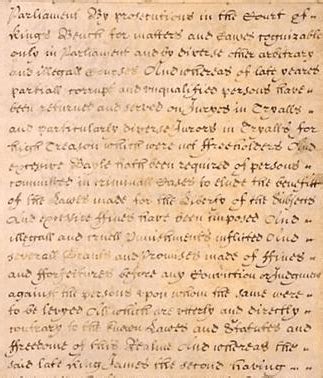 Parliament By prosecutions in the Court of
Kings Bench for matters and Causes cognizable
only in Parliament and by diverse other arbitrary
and illegall Courses And whereas of late yeares
partiall corrupt and unqualifyed persons have
been returned and served on Juryes in Tryalls
and particularly diverse Jurors in Tryalls for
high Treason which were not freeholders And
excessive Bayle hath been required of persons
committed in criminall Cases to elude the benefitt
of the Lawes made for the Liberty of the Subjects
And excessive ffines have been imposed And
illegall and cruell Punishments inflicted And
severall Grants and Promises made of ffines
and fforfeitures before any Conviction or Judgment
against the persons upon whom the same were
to be levyed All which are utterly and directly
contrary to the known Lawes and Statutes and
ffreedome of this Realme And whereas the
said late King James the second having